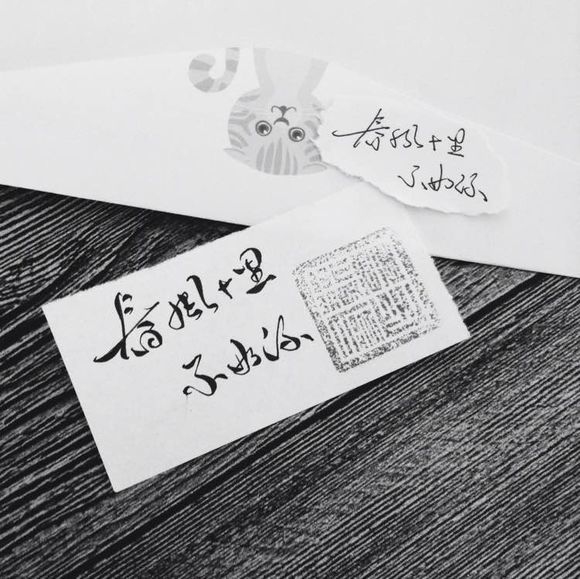 春风十里
不如你
春风十里
不如你